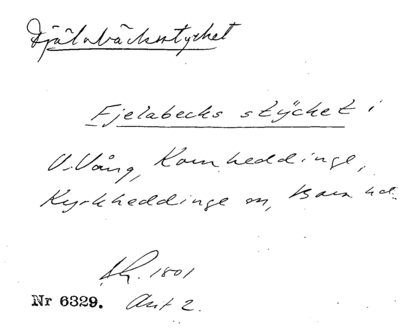 Fjälabäcksstycket
Fjelabecks stycket i
V. Vång, Kornheddinge,
Kyrkheddinge sn, Bara hd.
Sk. 1801
Nr 6329. Akt 2.